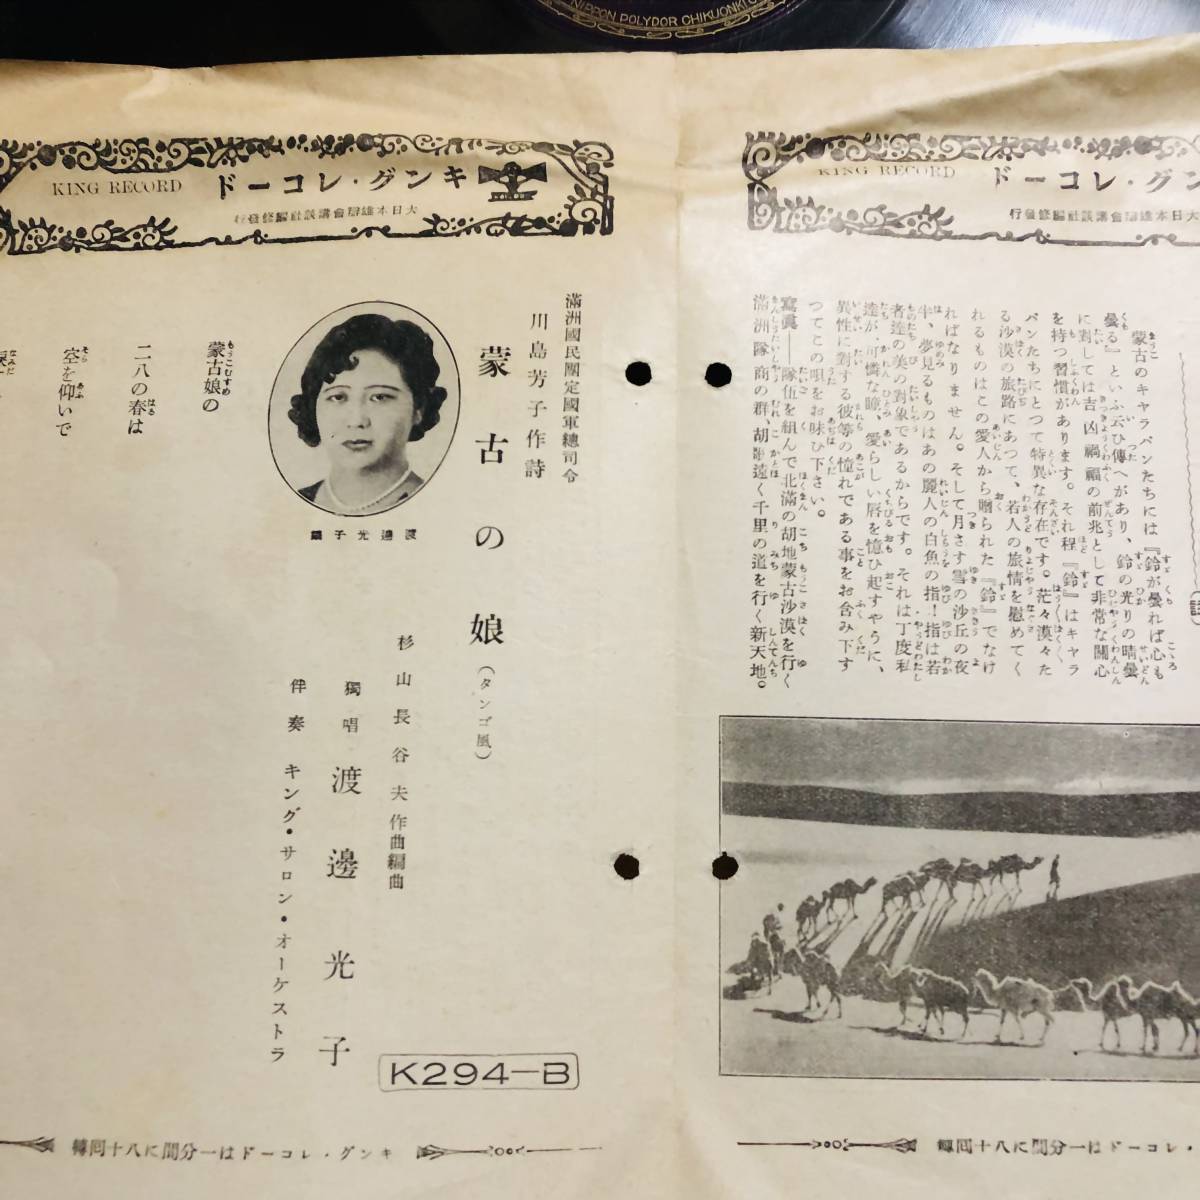 NIPPON POLYDOR CHIKUONKI
KING RECORD
キング・レコード
大日本雄辯會講談社編修發行
蒙古のキャラバンたちには『鈴が曇れば心も
曇る』といふ云ひ傳へがあり、鈴の光りの晴曇
に對しては吉凶禍福の前兆として非常な關心
を持つ習慣があります。それ程『鈴』はキャラ
バンたちにとつて特異な存在です。茫々漠々た
る沙漠の旅路にあつて、若人の旅情を慰めてく
れるものはこの愛人から贈られた『鈴』でなけ
ればなりません。そして月さす雪の沙丘の夜
半、夢見るものはあの麗人の白魚の指！指は若
者達の美の對象であるからです。それは丁度私
達が、可憐な瞳、愛らしい唇を憶ひ起すやうに、
異性に對する彼等の憧れである事をお含み下す
つてこの唄をお味ひ下さい。
寫眞――隊伍を組んで北滿の胡地蒙古沙漠を行く
滿洲隊商の群、胡影遠く千里の道を行く新天地。
キング・レコードは一分間に八十回轉
KING RECORD
キング・レコード
大日本雄辯會講談社編修發行
滿洲國民團定國軍總司令
川島芳子作詩
蒙古の娘（タンゴ風）
渡邊光子孃
杉山長谷夫作曲編曲
獨唱 渡邊光子
伴奏 キング・サロン・オーケストラ
蒙古娘の
二八の春は
空を仰いで
K294-B
キング・レコードは一分間に八十回轉